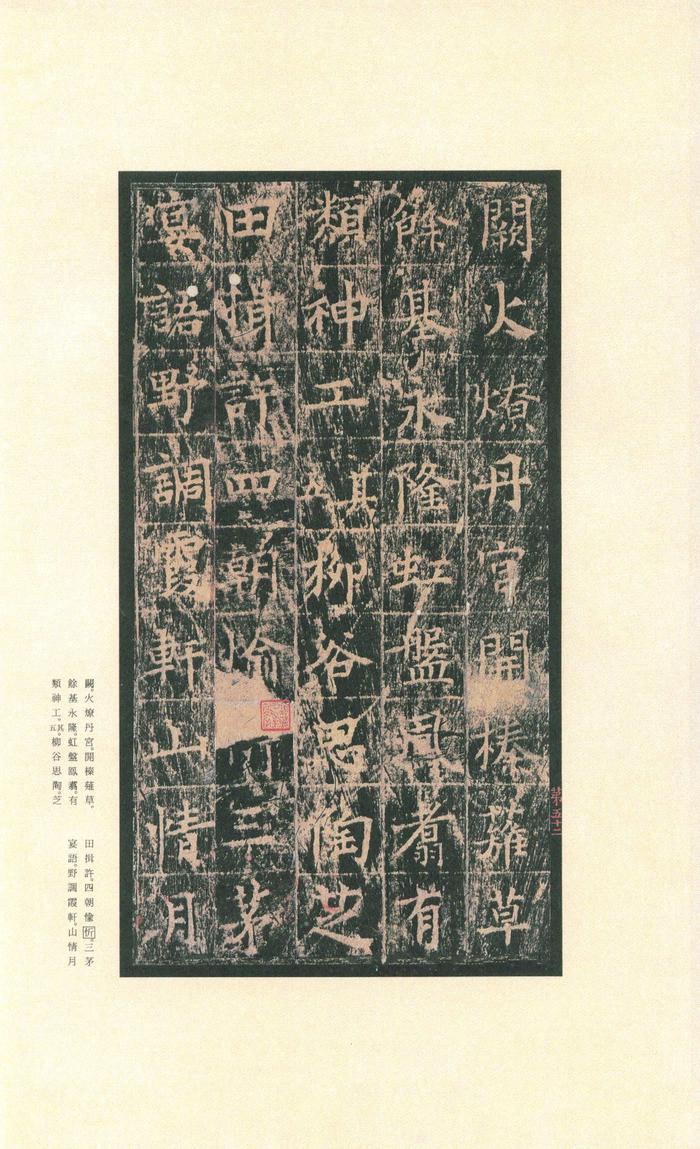 闕火燎丹宮開榛薙草
餘基永隆虹盤鳳翥有
類神工其五柳谷思陶芝
田揖許四朝愉
三茅
宴語野調霞軒山情月
闕。火燎丹宮。開榛薙草。
餘基永隆。虹盤鳳翥。有
類神工。其五柳谷思陶。芝
田揖許。四朝愉忻。三茅
宴語。野調霞軒。山情月